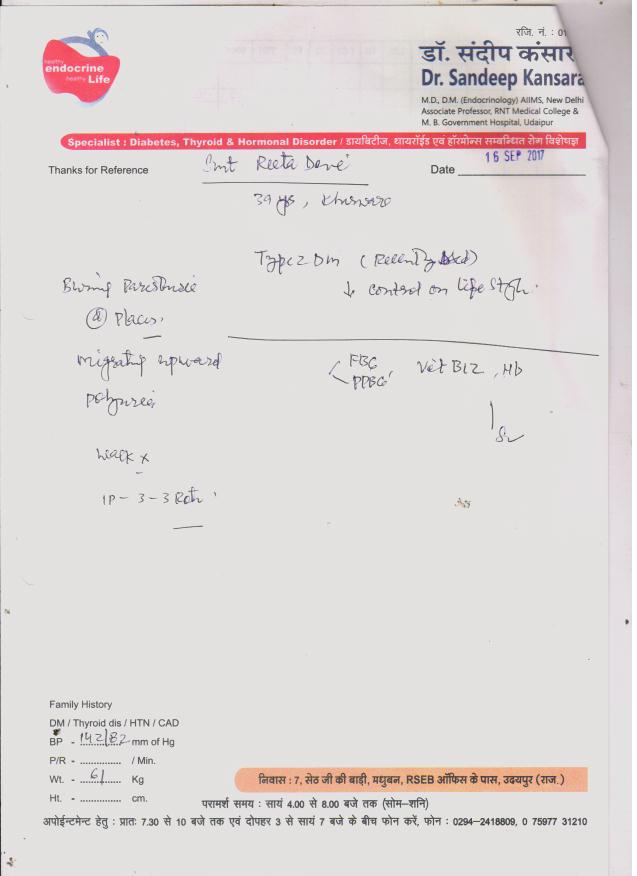 healthy
endocrine
healthy Life
रजि. नं. : 01
डॉ. संदीप कंसारा
Dr. Sandeep Kansara
M.D., D.M. (Endocrinology) AIIMS, New Delhi
Associate Professor, RNT Medical College &
M. B. Government Hospital, Udaipur
Specialist : Diabetes, Thyroid & Hormonal Disorder / डायबिटीज, थायरॉईड एवं हॉरमोन्स सम्बन्धित रोग विशेषज्ञ
Thanks for Reference Smt Reeta Date 16 SEP 2017
39 yrs,
Type 2 DM (Recently
↓ control on life style.
Burning
@ Places.
migrating upward
FBG
PPBG
Vit B12, Hb
walk x
1P - 3 - 3 Roti
Family History
DM / Thyroid dis / HTN / CAD
BP - 142/82 mm of Hg
P/R - ............... / Min.
Wt. - 61 Kg
Ht. - ............... cm.
निवास : 7, सेठ जी की बाड़ी, मधुबन, RSEB ऑफिस के पास, उदयपुर (राज.)
परामर्श समय : सायं 4.00 से 8.00 बजे तक (सोम-शनि)
अपोईन्टमेन्ट हेतु : प्रातः 7.30 से 10 बजे तक एवं दोपहर 3 से सायं 7 बजे के बीच फोन करें, फोन : 0294-2418809, 0 75977 31210